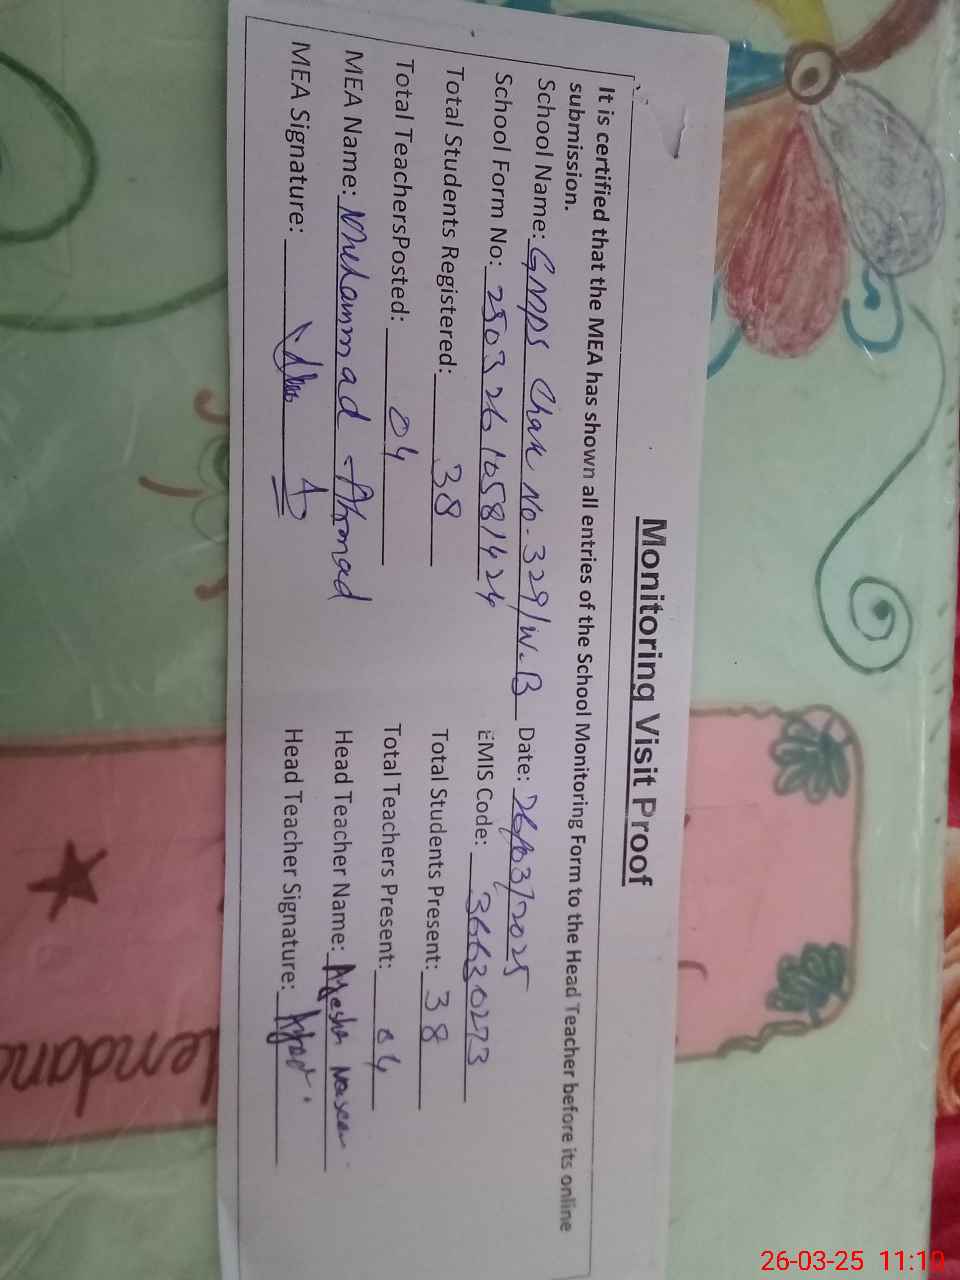 Monitoring Visit Proof
It is certified that the MEA has shown all entries of the School Monitoring Form to the Head Teacher before its online
submission.
School Name: GMPS Chak No. 329/W.B Date: 26/03/2025
School Form No: 250326 1058 1424 EMIS Code: 36630273
Total Students Registered: 38 Total Students Present: 38
Total TeachersPosted: 04 Total Teachers Present: 04
MEA Name: Muhammad Ahmad Head Teacher Name: Ayesha
MEA Signature: Head Teacher Signature:
lendand
26-03-25 11:10